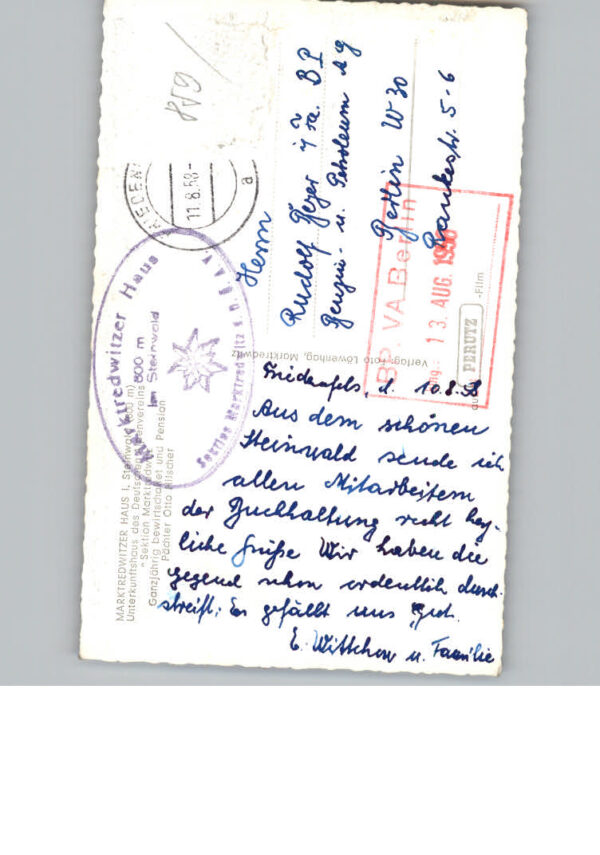 859
11.8.58-
a
Marktredwitzer Haus
800 m
Im Steinwald
Sektion Marktredwitz d. D.A.V.
MARKTREDWITZER HAUS I. Steinwald (800 m)
Unterkunftshaus des Deutschen Alpenvereins
"Sektion Marktredwitz"
Ganzjährig bewirtschaftet und Pension
Pächter Otto Pilscher
Herrn
Rudolf Beyer i/Fa. BP
Benzin- u. Petroleum AG
Berlin W 30
Rankestr. 5-6
BP. VA Berlin
Eing.: 13. AUG. 1958
Verlag: Foto Löwenhag, Marktredwitz
auf PERUTZ -Film
Friedenfels, d. 10.8.58
Aus dem schönen
Steinwald sende ich
allen Mitarbeitern
der Buchhaltung recht herz-
liche Grüße Wir haben die
Gegend schon ordentlich durch-
streift; Es gefällt uns gut.
E. Wittchow u. Familie